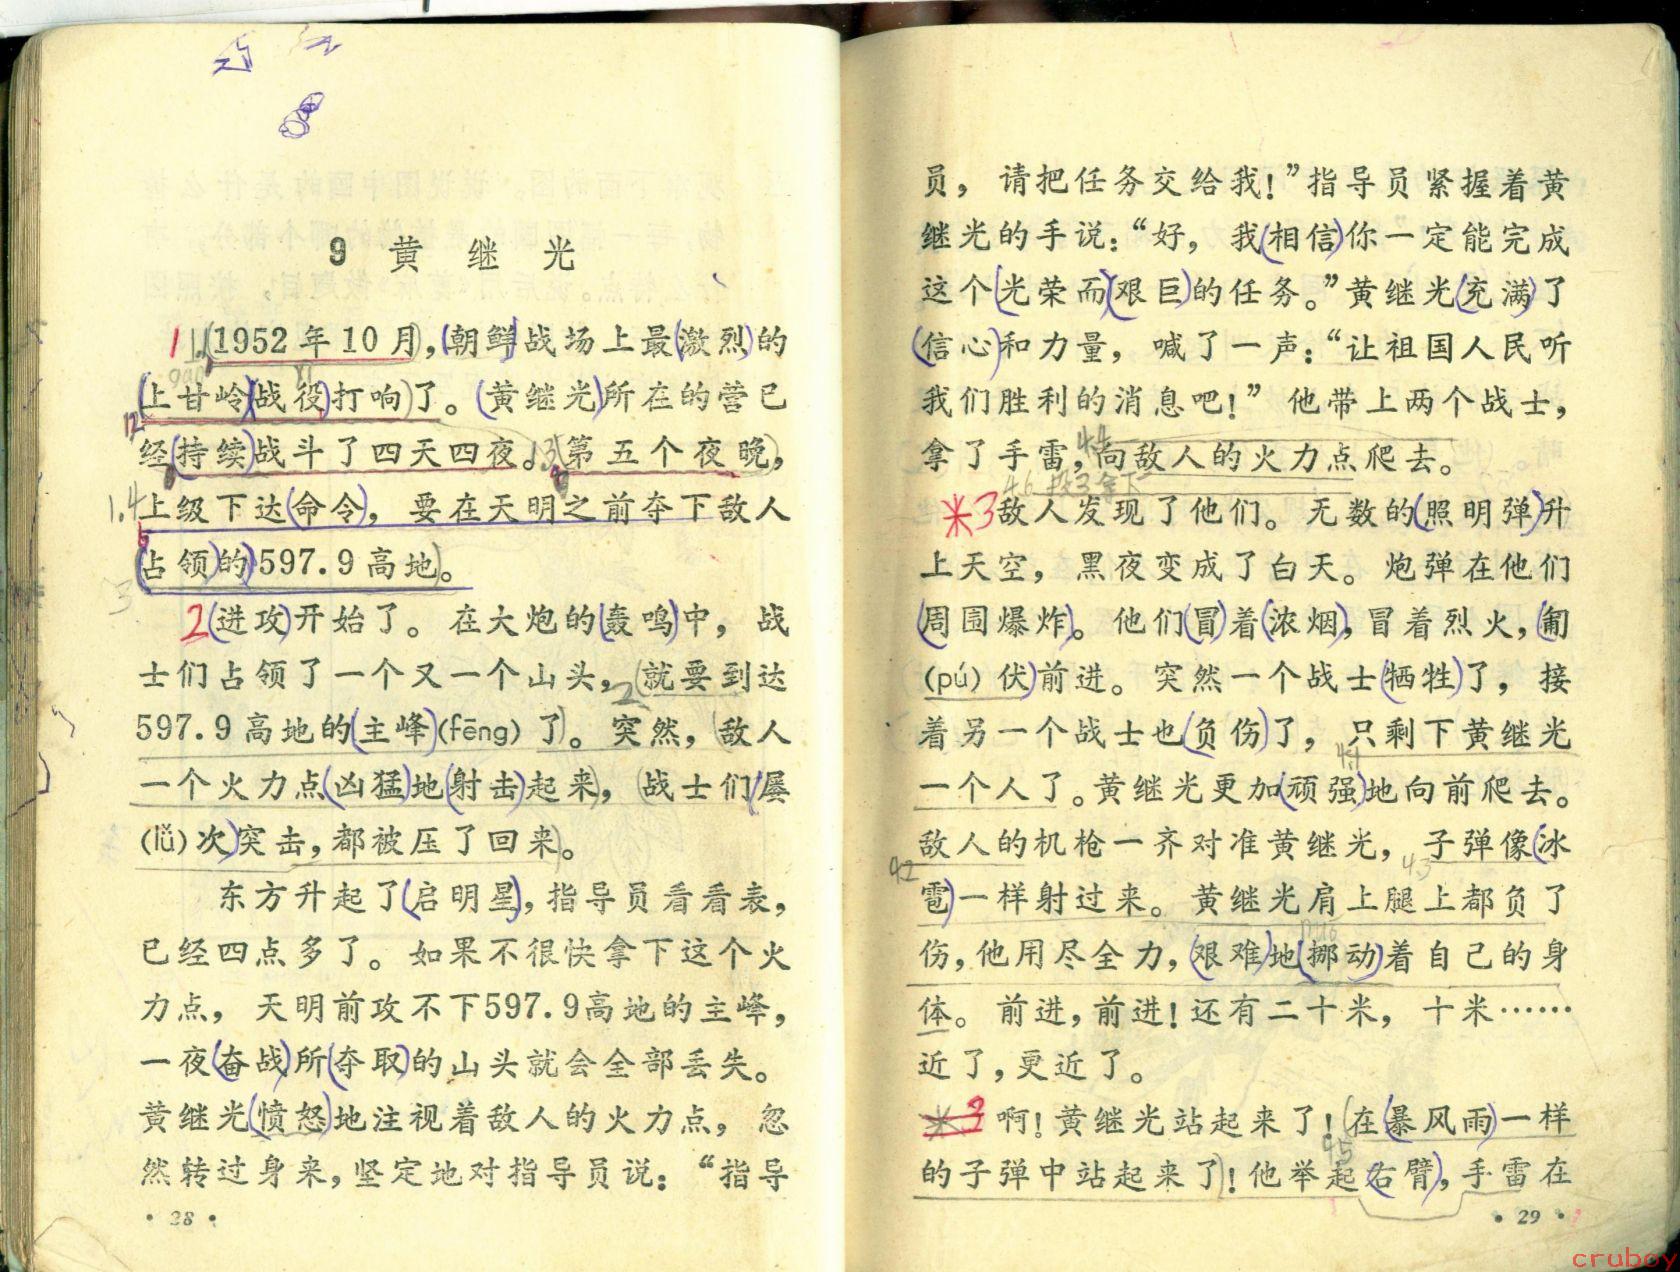 9 黄继光
1952年10月，朝鲜战场上最激烈的
上甘岭战役打响了。黄继光所在的营已
经持续战斗了四天四夜。第五个夜晚，
上级下达命令，要在天明之前夺下敌人
占领的597.9高地。
2 进攻开始了。在大炮的轰鸣中，战
士们占领了一个又一个山头，就要到达
597.9高地的主峰(fēng)了。突然，敌人
一个火力点凶猛地射击起来，战士们屡
(lǚ)次突击，都被压了回来。
东方升起了启明星，指导员看看表，
已经四点多了。如果不很快拿下这个火
力点，天明前攻不下597.9高地的主峰，
一夜奋战所夺取的山头就会全部丢失。
黄继光愤怒地注视着敌人的火力点，忽
然转过身来，坚定地对指导员说：“指导
·28·
员，请把任务交给我！”指导员紧握着黄
继光的手说：“好，我相信你一定能完成
这个光荣而艰巨的任务。”黄继光充满了
信心和力量，喊了一声：“让祖国人民听
我们胜利的消息吧！”他带上两个战士，
拿了手雷，向敌人的火力点爬去。
3 敌人发现了他们。无数的照明弹升
上天空，黑夜变成了白天。炮弹在他们
周围爆炸。他们冒着浓烟，冒着烈火，匍
(pú)伏前进。突然一个战士牺牲了，接
着另一个战士也负伤了，只剩下黄继光
一个人了。黄继光更加顽强地向前爬去。
敌人的机枪一齐对准黄继光，子弹像冰
雹一样射过来。黄继光肩上腿上都负了
伤，他用尽全力，艰难地挪动着自己的身
体。前进，前进！还有二十米，十米……
近了，更近了。
啊！黄继光站起来了！在暴风雨一样
的子弹中站起来了！他举起右臂，手雷在
·29·
cruboy